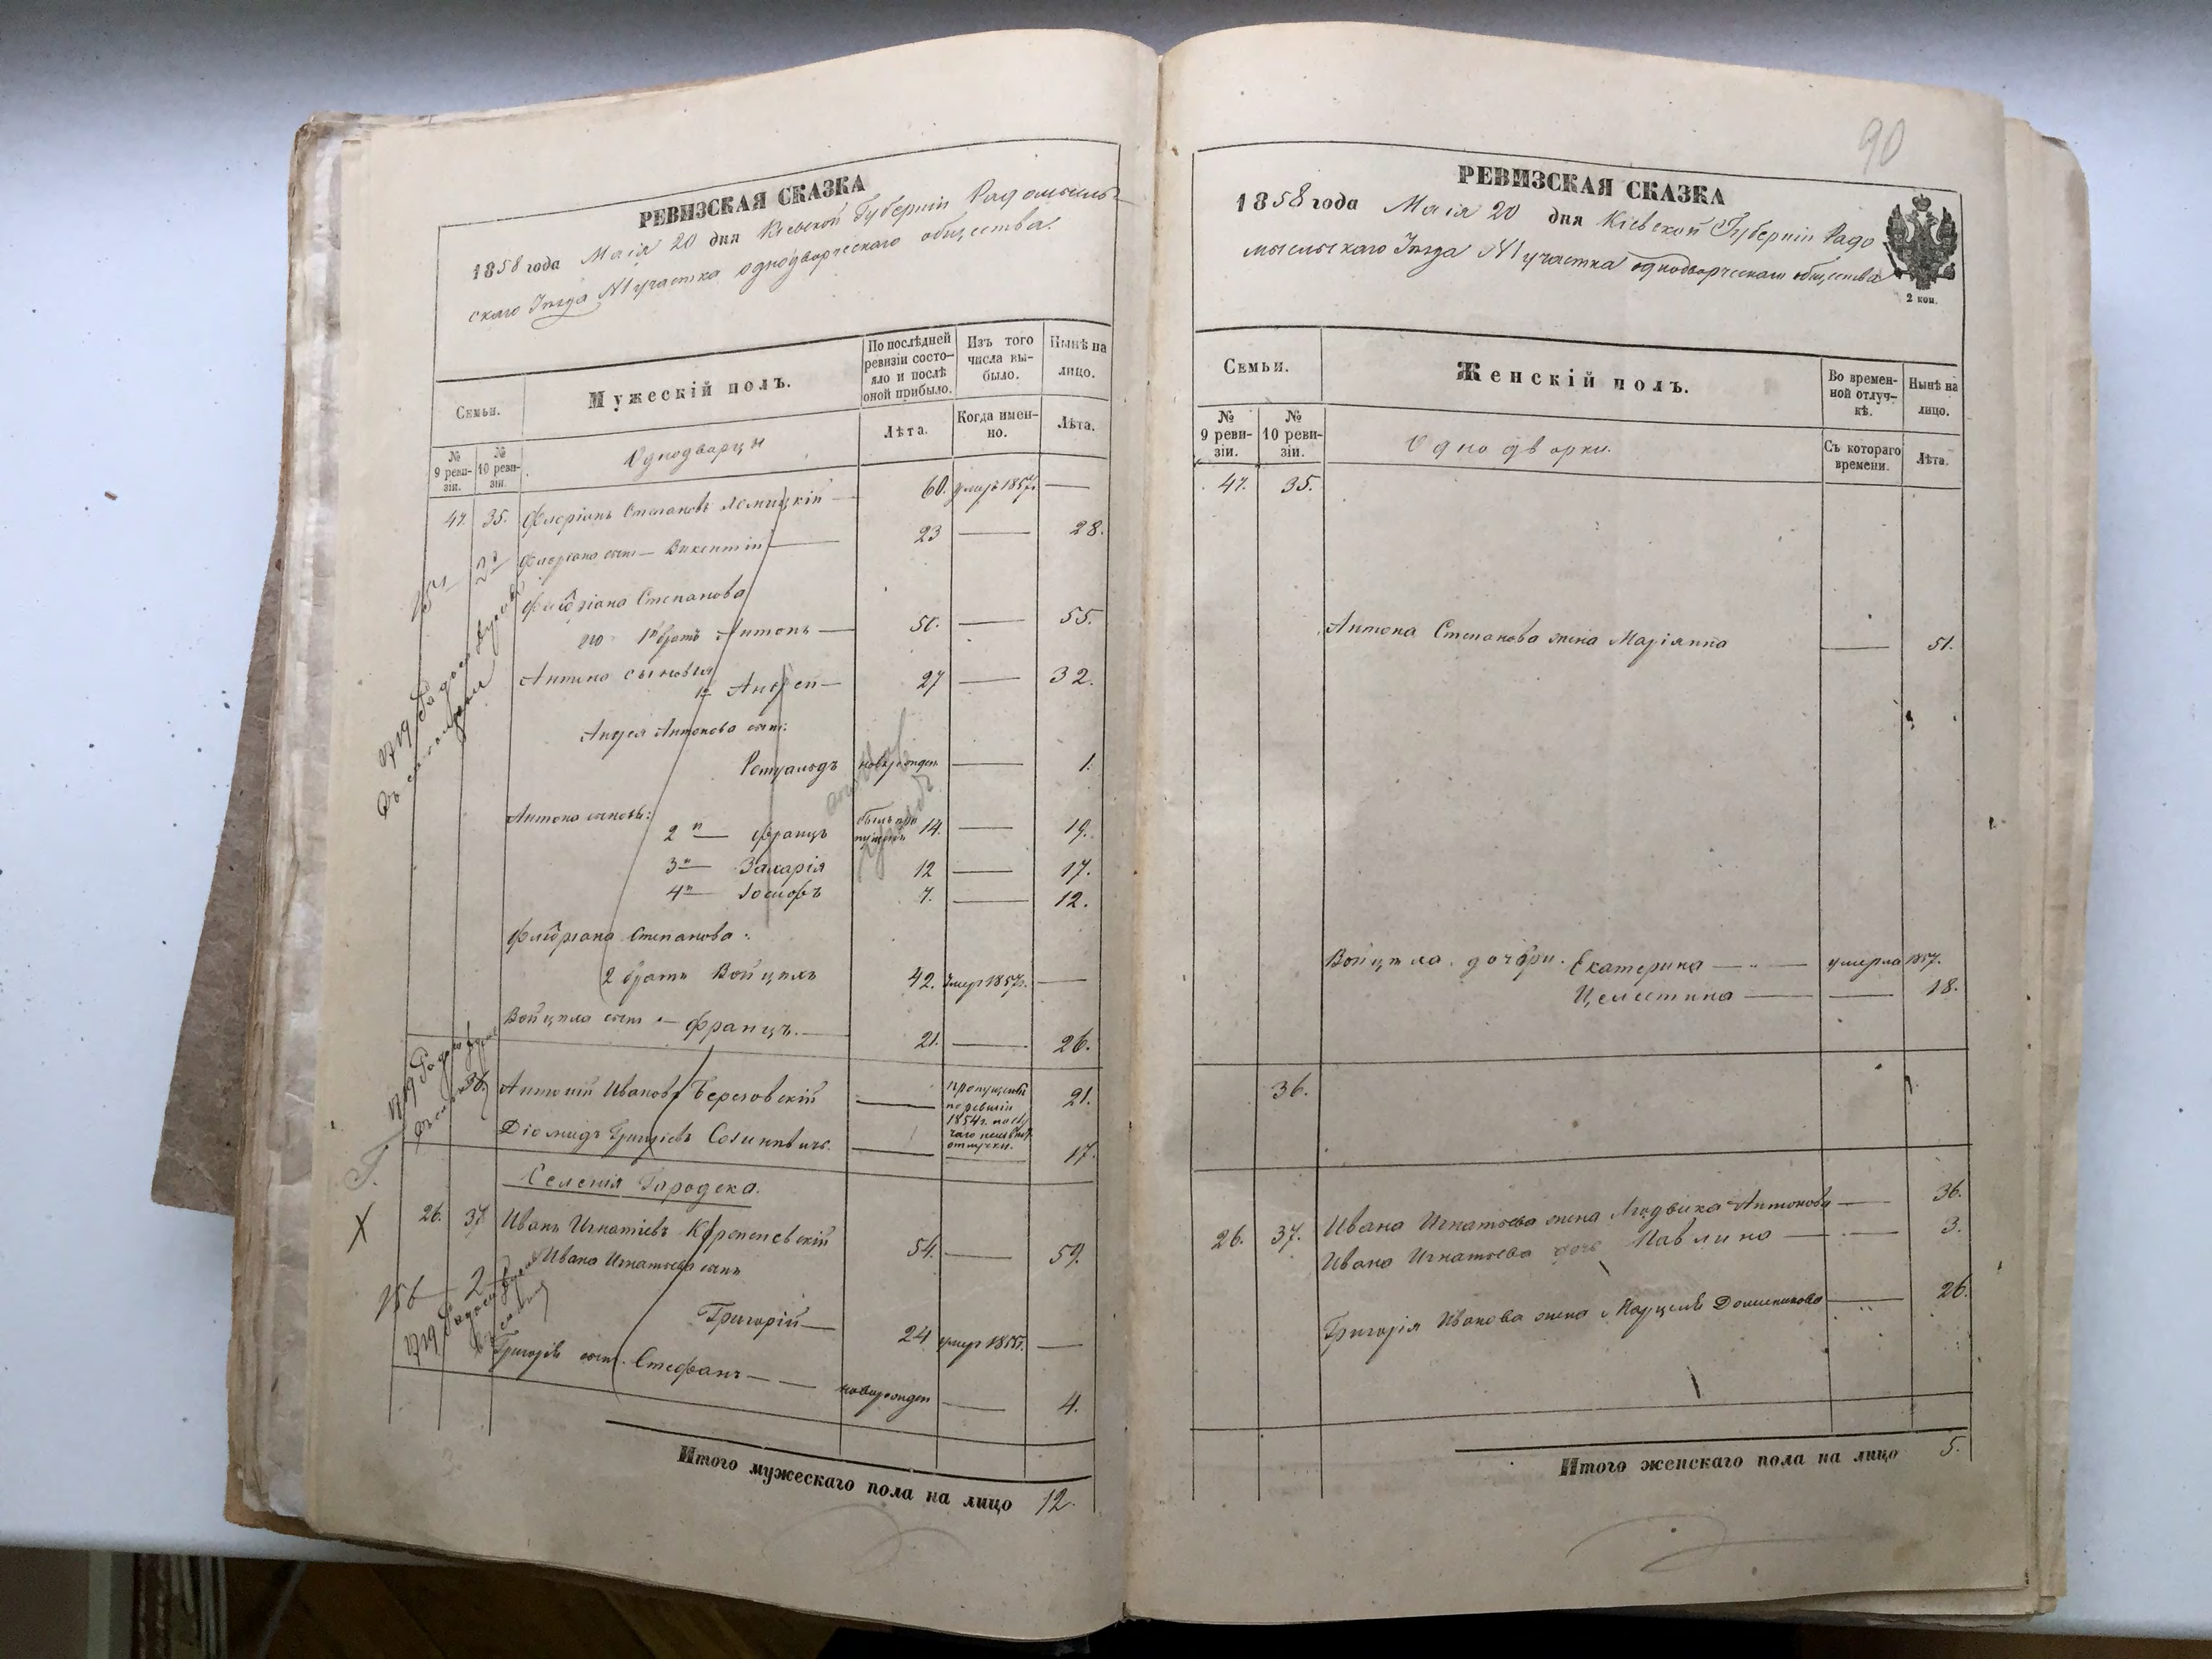 РЕВИЗСКАЯ СКАЗКА
1858 года Маія 20 дня Кіевской Губерніи Радомысль-
скаго Уѣзда № 1 участка однодворческаго общества.
Семьи.
Мужескій полъ.
По послѣдней ревизіи состо-яло и послѣ оной прибыло.
Изъ того числа вы-было.
Нынѣ на лицо.
№ 9 реви-зіи.
№ 10 реви-зіи.
Однодворцы
Лѣта.
Когда имен-но.
Лѣта.
47. 35. Флоріанъ Степановъ 60. умеръ 1857г. —
Флоріана сынъ — Викентій — 23 — 28.
Флоріана Степанова
1й братъ Антонъ — 50. — 55.
Антона сыновья
1й Андрей — 27 — 32.
Андрея Антонова сынъ:
Ромуальдъ новорожден — 1.
Антона сыновья:
2й — Францъ былъ про пущенъ 14. — 19.
3й — Захарія 12 — 17.
4й — Іосифъ 7. — 12.
Флоріана Степанова:
2 братъ Войцехъ 42. умеръ 1857г. —
Войцеха сынъ — Францъ. — 21. — 26.
36. Антоній Ивановъ Березовскій — пропущенъ по ревизіи 1854г. отлучки. 21.
Діомидъ — 17.
Селенія Городска.
26. 37. Иванъ Игнатіевъ 54. — 59.
Ивана Игнатьева сынъ
Григорій — 24 умеръ 1855г. —
Григорія сынъ. Стефанъ — новорожден — 4.
Итого мужескаго пола на лицо 12.
90
РЕВИЗСКАЯ СКАЗКА
1858 года Маія 20 дня Кіевской Губерніи Радо
мысльскаго Уѣзда № 1 участка однодворческаго общества
2 коп.
Семьи.
Женскій полъ.
Во времен-ной отлуч-кѣ.
Нынѣ на лицо.
№ 9 реви-зіи.
№ 10 реви-зіи.
Однодворки.
Съ котораго времени.
Лѣта.
47. 35.
Антона Степанова жена Маріанна — 51.
Войцеха дочери. Екатерина — умерла 1857.
Целестина — 18.
36.
26. 37. Ивана Игнатьева жена Людвика Антонова — 36.
Ивана Игнатьева дочь Павлина — 3.
Григорія Иванова жена — 26.
Итого женскаго пола на лицо 5.